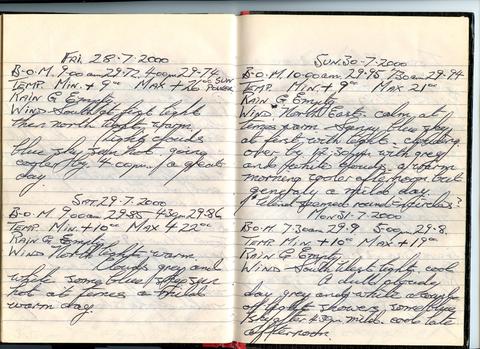 Fri. 28-7-2000
B-O-M. 9-00am 29-72. 4-00pm 29-74
Temp. Min + 9°° Max + 20°° in sun
Rain G Empty
Wind South at first light
then north light warm.
lightly clouds
blue sky sun hot going
cooler by 4 00pm. a great
day
Sat. 29-7-2000
B-O-M. 9-00am 29-85 4-30pm 29-86
Temp. Min + 10°° Max + 22°°
Rain G Empty
Wind North light warm
Clouds grey and
white some blue sky sun
hot at times a mild
warm day.
Sun. 30-7-2000
B-O-M. 10-00am. 29-95. 7.30am 29-94
Temp. Min + 9°° Max 21°°
Rain G Empty
Wind. North East. calm at
times warm. Sunny blue sky
at first with light clouding
over by 1-30pm with grey
and white clouds. a warm
morning cooler afternoon but
generaly a mild day.
Mon 31-7-2000
B-O-M. 7.30am 29-9 5-00pm 29-8.
Temp. Min + 10°° Max + 19°°
Rain G Empty
Wind South West light. cool
A dull cloudy
day grey and white a couple
of light showers, some blue
sky after 4-30pm mild. cool late
afternoon.